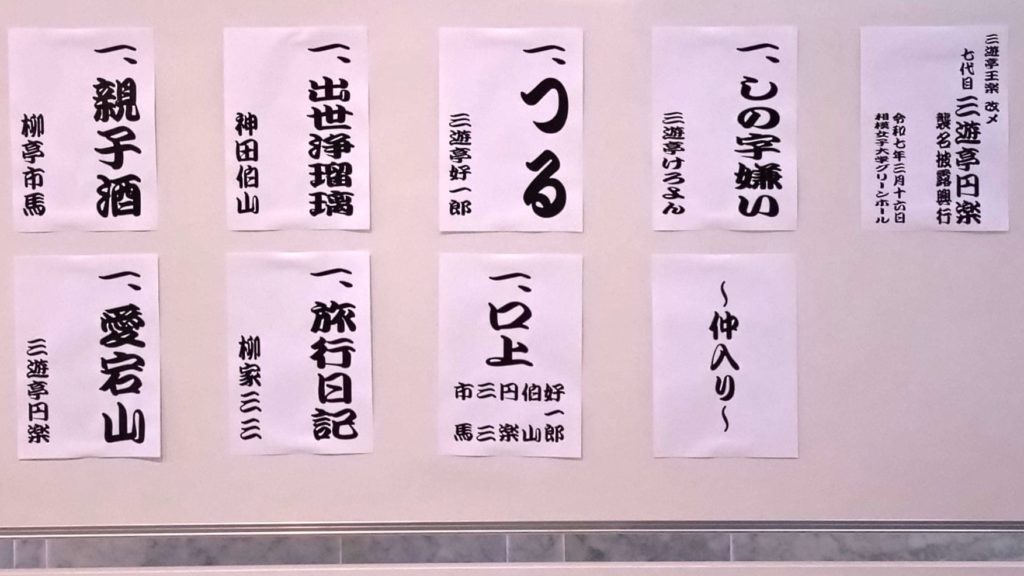 三遊亭王楽 改メ
七代目 三遊亭円楽
襲名披露興行
令和七年三月十六日
相模女子大学グリーンホール
一、しの字嫌い
三遊亭けろよん
一、つる
三遊亭好一郎
一、出世浄瑠璃
神田伯山
一、親子酒
柳亭市馬
〜仲入り〜
一、口上
好一郎
伯山
円楽
三三
市馬
一、旅行日記
柳家三三
一、愛宕山
三遊亭円楽